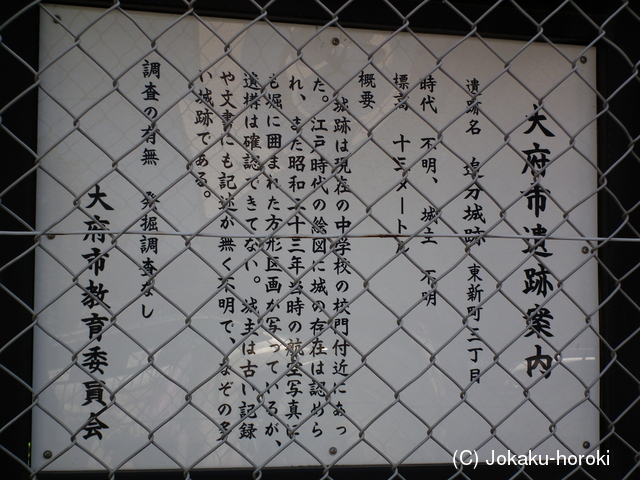 大府市遺跡案内
遺跡名　追分城跡　東新町三丁目
時代　不明、城主　不明
標高　十三メートル
概要
城跡は現在の中学校の校門付近にあっ
た。江戸時代の絵図に城の存在は認めら
れ、また昭和二十三年当時の航空写真に
も堀に囲まれた方形区画が写っているが、
遺構は確認できてない。城主は古い記録
や文書にも記述が無く不明で、なぞの多
い城跡である。
調査の有無　発掘調査なし
大府市教育委員会
(C) Jokaku-horoki